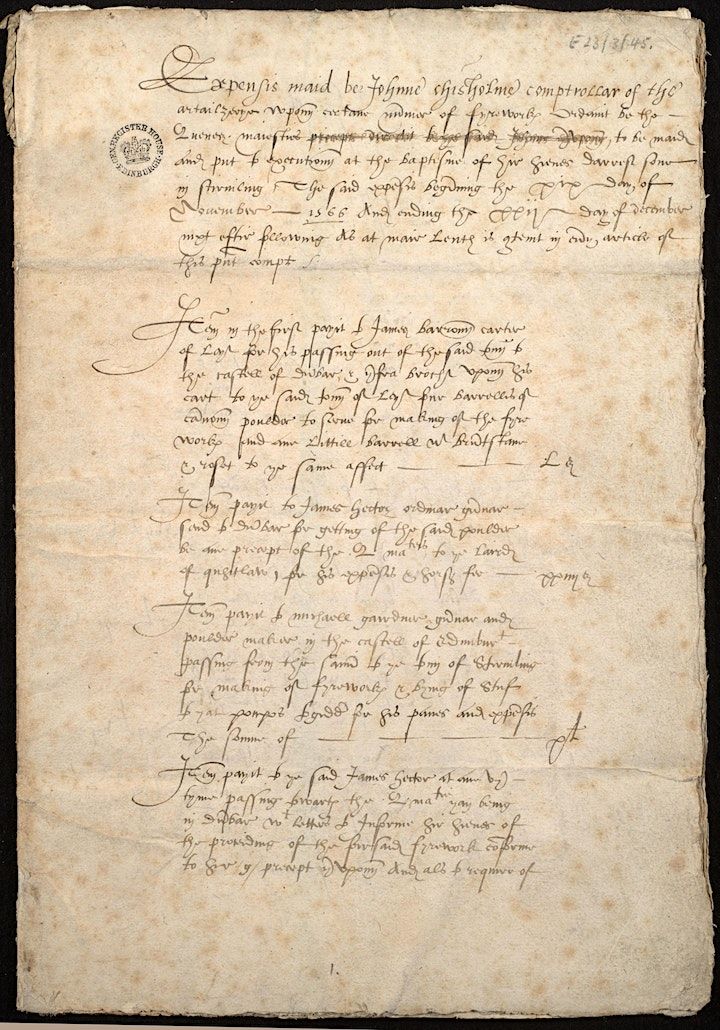 E 23/3/45.
GEN. REGISTER HOUSE EDINBURGH
Expensis maid be Johnne chisholme comptrollar of the
artailzerye upoun certane of fyrework ordanit be the
Quenes maiesties precept direct to ye said Johnne to be maid
and put to executioun at the baptisme of hir hienes darrest sone
in sterling The said expensis begynning the xix day of
November 1566 And ending the xxij day of december
nixt eftir following As at mair lenth is in article of
this pnt compt
Item in the first payit to James barroun carter
of Leyt for his passing out of the said to
the castell of dunbar upoun his
cart to ye said of Leyt four barrellis of
cannoun poulder to serve for making of the fyre
work and ane Littill barrell wt bruntstane
& roset to ye same affect
Item payit to James hector ordinar gunar
said to dunbar for getting of the said poulder
be ane precept of the Q maties to ye Laird
of quhitlaw, for his expensis & hors fee
Item payit to michaell gardner gunar and
poulder maker in the castell of Edinburt
passing from the samin to ye of Sterling
for making of fyrework & bying of Stuf
to yat purpos for his panes and expensis
The soume of xl
Item payit to ye said James hector at ane
tyme passing the Q matie yan being
in dunbar wt letters to Informe hir hienes of
the providing of the foirsaid fyrework conforme
to hir precept yrupoun And als to requyre of
1.